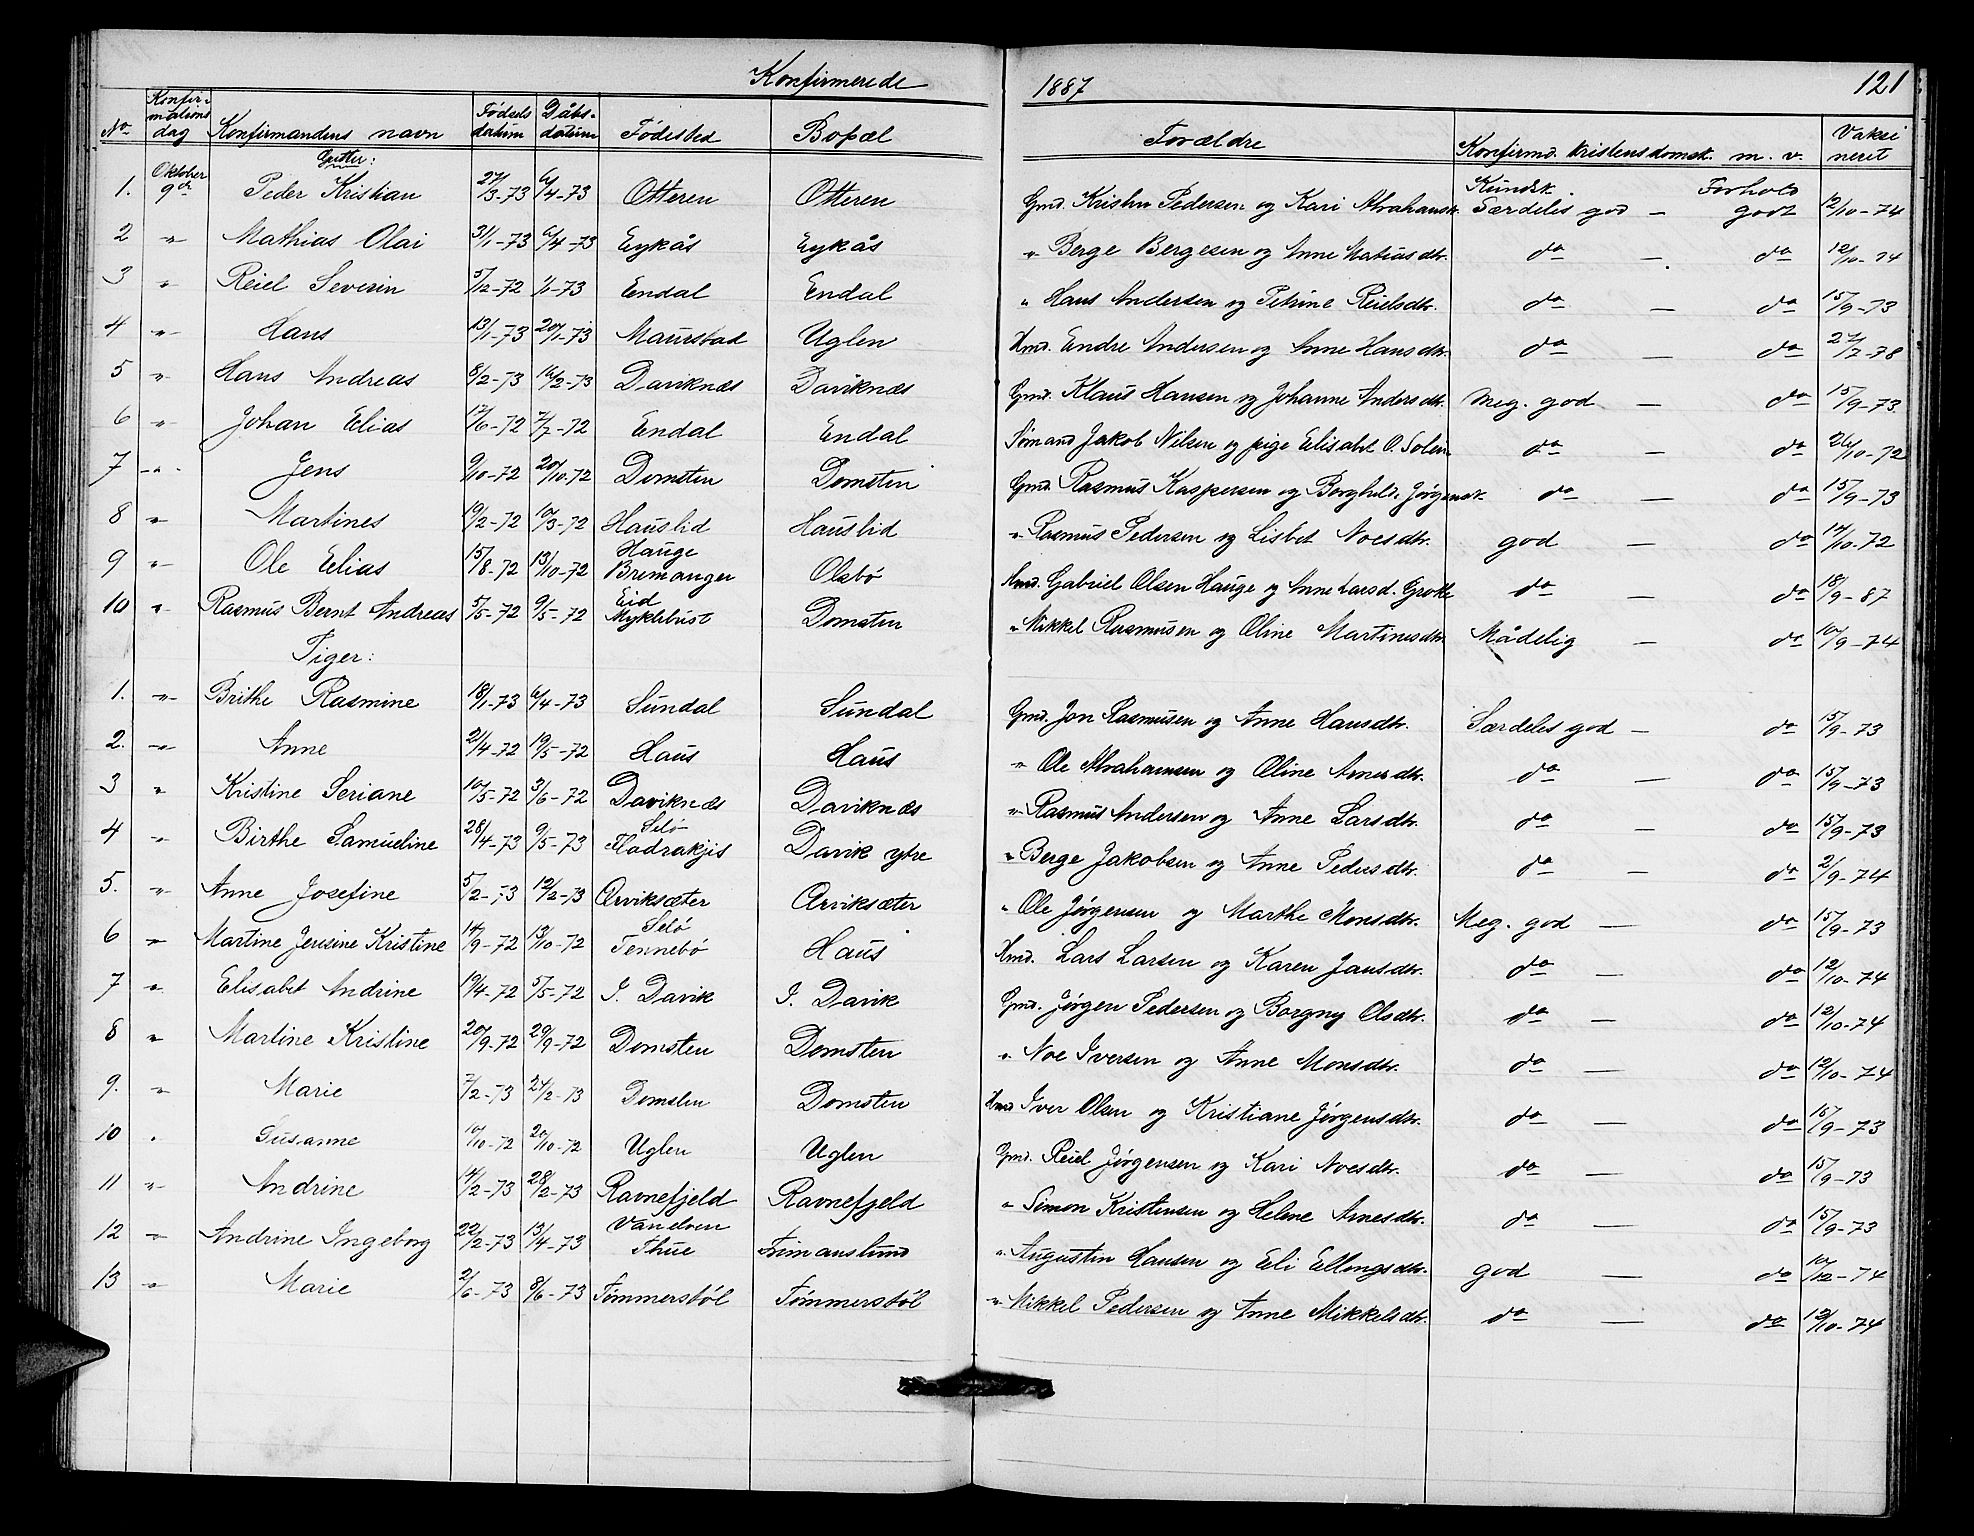 Konfirmerede 1887 121
No Konfirmations dag Konfirmandens navn Fødsels datum Dåbs-datum Fødested Bopæl Forældre Konfirmd. kristensdomsk. m. v. Vaksineret
Gutter: Kundsk. Forhold
1. Oktober 9de Peder Kristian 27/3-73 6/4-73 Otteren Otteren Gmd. Kristen Pedersen og Kari Abrahamsd. Særdeles god — godt 12/10-74
2 " Mathias Olai 31/1-73 6/4-73 Eykås Eykås " Berge Bergesen og Anne Matiasdtr. do — do 12/10-74
3 " Reiel Severin 5/12-72 1/1-73 Endal Endal " Hans Andersen og Petrine Reielsdtr. do — do 15/9-73
4 " Hans 13/1-73 20/1-73 Maurstad Uglen Hmd. Endre Andersen og Anne Hansdtr. do — do 27/7-78
5 " Hans Andreas 8/2-73 16/2-73 Daviknæs Daviknæs Gmd. Klaus Hansen og Johanne Andersdtr. Meg. god — do 15/9-73
6 " Johan Elias 17/6-72 7/7-72 Endal Endal Sømand Jakob Nilsen og pige Elisabet O. do — do 26/10-72
7 " Jens 9/10-72 20/10-72 Domsten Domsten Gmd. Rasmus Kaspersen og Borghild Jørgensd. do — do 15/9-73
8 " Martines 19/2-72 10/3-72 Hauslid Hauslid " Rasmus Pedersen og Lisbet Noesdtr. god — do 14/10-72
9 " Ole Elias 15/8-72 13/10-72 Hauge Bremanger Olsbö Hmd. Gabriel Olsen Hauge og Anne Larsd. Grotle do — do 18/9-87
10 " Rasmus Bernt Andreas 5/5-72 9/5-72 Eid Myklebust Domsten " Mikkel Rasmusen og Oline Martinusdtr. Mådelig — do 10/9-74
Piger:
1. " Brithe Rasmine 18/1-73 6/4-73 Sundal Sundal Gmd. Jon Rasmusen og Anne Hansdtr. Særdeles god — do 15/9-73
2. " Anne 21/4-72 19/5-72 Haus Haus " Ole Abrahamsen og Oline Arnesdtr. do — do 15/9-73
3 " Kristine Seriane 10/5-72 3/6-72 Daviknæs Daviknæs " Rasmus Andersen og Anne Larsdtr. do — do 15/9-73
4 " Birthe Samueline 28/4-73 9/5-73 Selö Davik ytre " Berge Jakobsen og Anne Pedersdtr. do — do 2/9-74
5. " Anne Josefine 5/2-73 12/2-73 Arviksæter Arviksæter " Ole Jørgensen og Marthe Monsdtr. Meg. god — do 15/9-73
6 " Martine Jensine Kristine 14/9-72 13/10-72 Selö Tennebö Haus Hmd. Lars Larsen og Karen Jansdtr. do — do 12/10-74
7 " Elisabet Andrine 19/4-72 5/5-72 I. Davik I. Davik Gmd. Jørgen Pedersen og Borgny Olsdtr. do — do 12/10-74
8 " Martine Kristine 20/9-72 29/9-72 Domsten Domsten " Noe Iversen og Anne Monsdtr. do — do 12/10-74
9. " Marie 7/2-73 24/2-73 Domsten Domsten Hmd Iver Olsen og Kristiane Jørgensdtr. do — do 15/9-73
10 " Susanne 10/10-72 20/10-72 Uglen Uglen Gmd. Reiel Jørgensen og Kari Noesdtr. do — do 15/9-73
11 " Andrine 14/2-73 28/2-73 Ravnefjeld Ravnefjeld " Simon Kristensen og Helene Arnesdtr. do — do 15/9-73
12 " Andrine Ingeborg 22/2-73 13/14-73 Vanelven Thue Frimanslund " Augustin Hansen og Eli Ellingsdtr. god — do 10/12-74
13 " Marie 2/6-73 8/6-73 Tømmerstöl Tømmerstöl " Mikkel Pedersen og Anne Mikkelsdtr. do — do 12/10-74